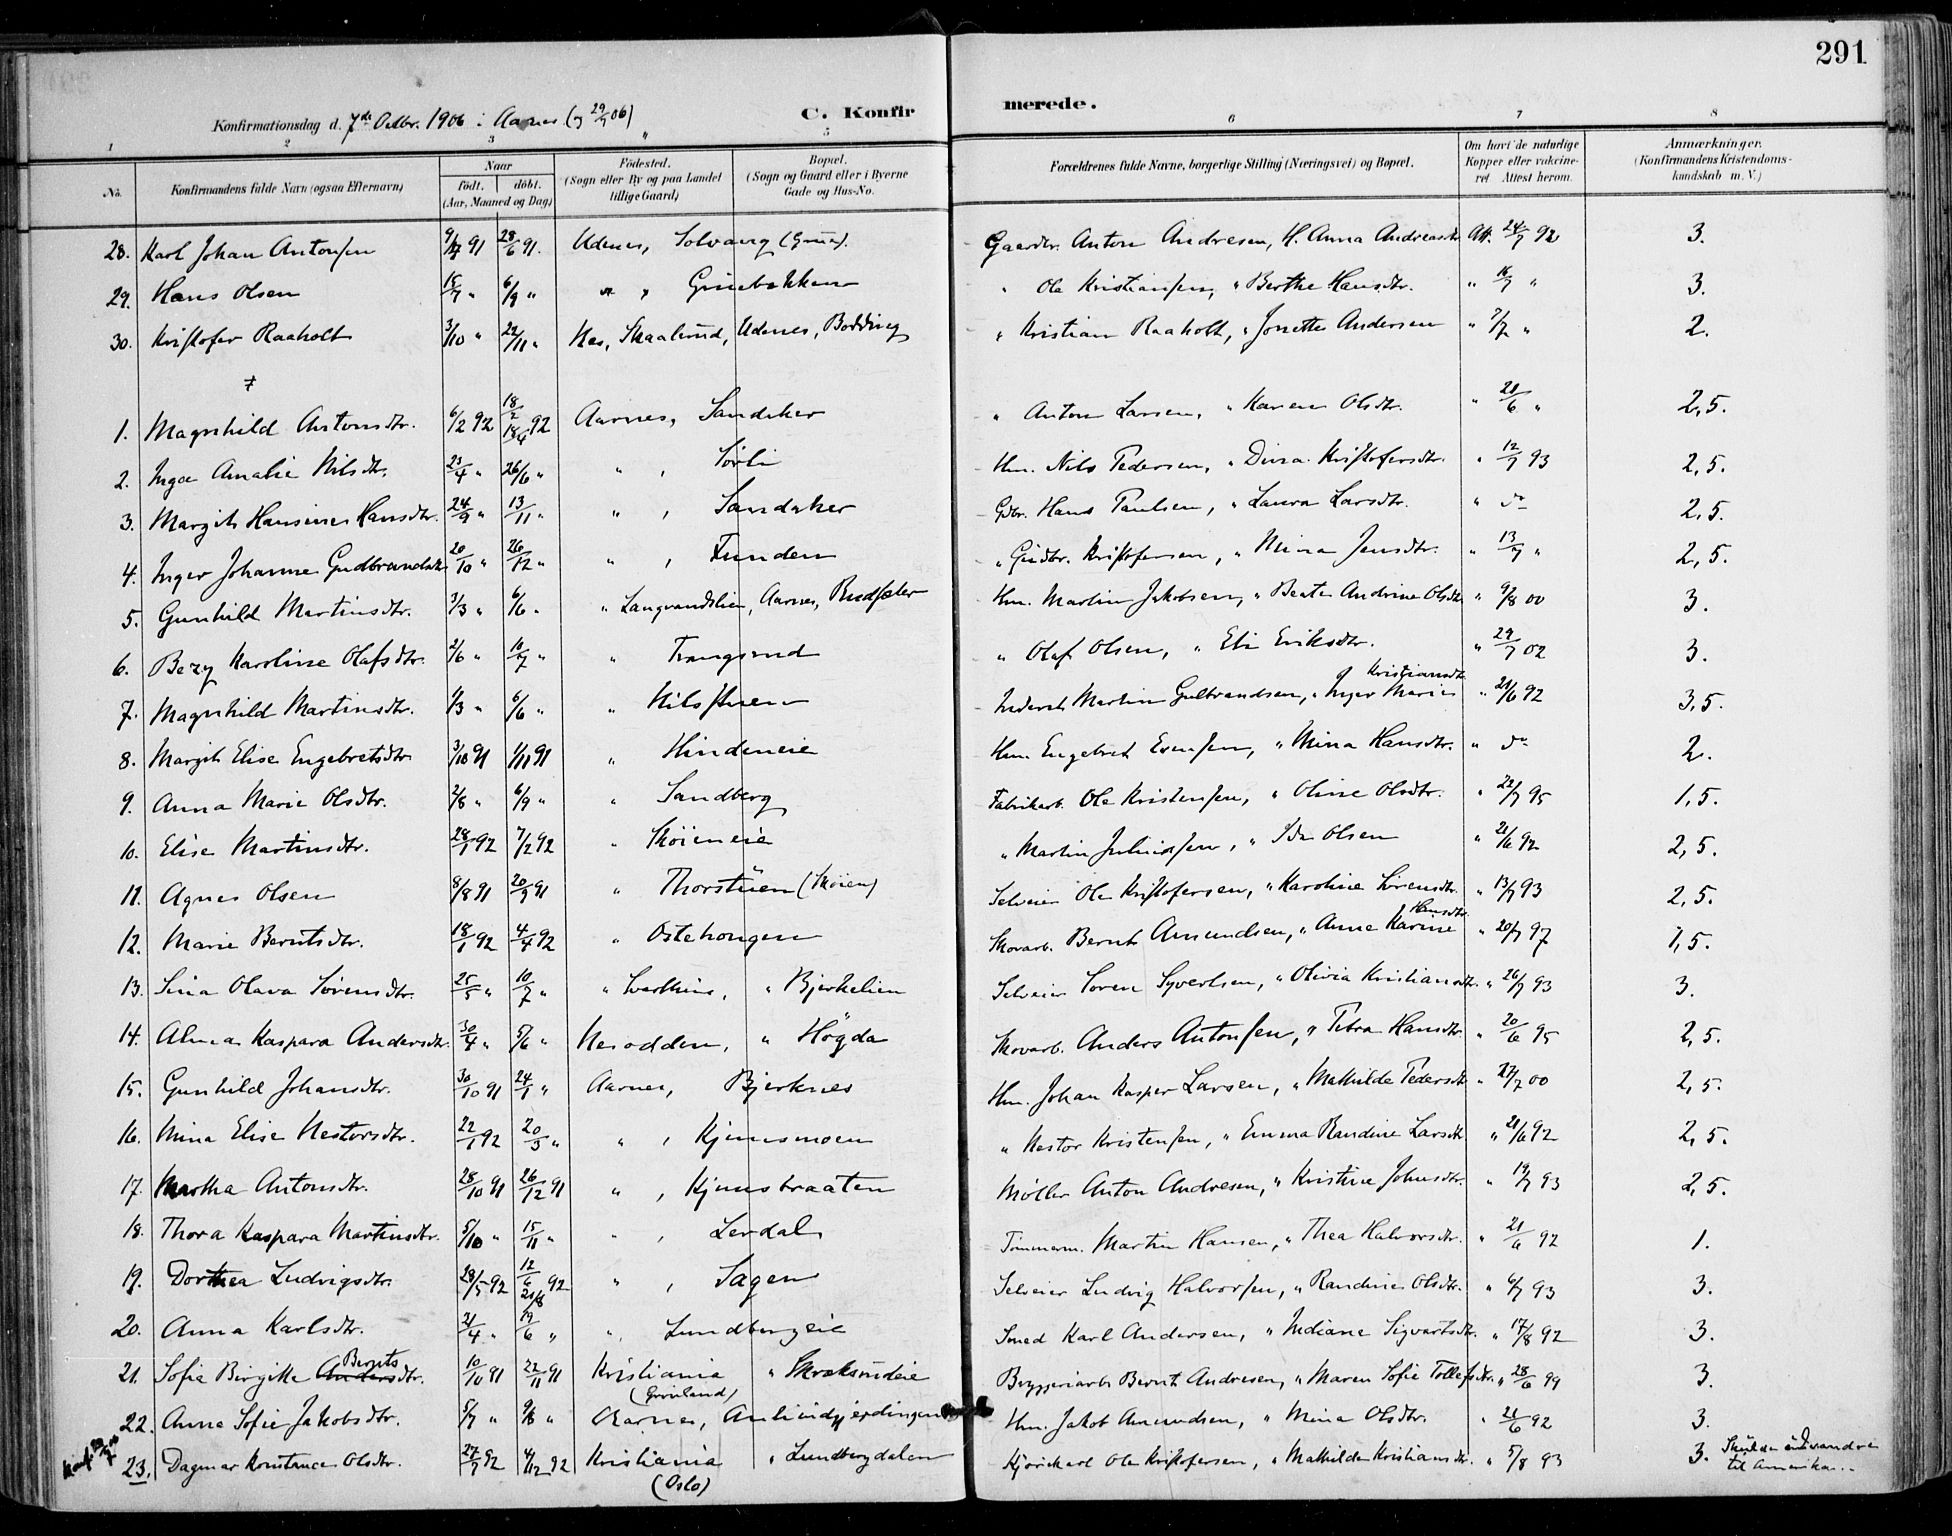 291
Konfirmationsdag d. 7de Octbr. 1906 i Aarnes (og 29/7 06)
C. Konfirmerede.
1 2 3 5 6 7 8
No.
Konfirmandens fulde Navn (ogsaa Efternavn)
Naar
født. døbt.
(Aar, Maaned og Dag)
Fødested.
(Sogn eller By og paa Landet tillige Gaard)
Bopæl.
(Sogn og Gaard eller i Byerne Gade og Hus-No.
Forældrenes fulde Navne, borgerlige Stilling (Næringsvei) og Bopæl.
Om havt de naturlige Kopper eller vakcineret. Attest herom.
Anmærkninger.
(Konfirmandens Kristendomskundskab m. V.)
28. Karl Johan Antonsen 91 28/6 91. Udenes, Solvang Gaardbr. Anton Andresen, H. Anna Andreasdtr. Att. 24/7 92 3.
29. Hans Olsen 18/7 " 6/9 " " " " Ole Kristiansen, " Berthe Hansdtr. " 16/7 " 3.
30. Kristofer Raaholt 3/10 " 22/11 " Nes, Skaalerud, Udenes, Bødding " Kristian Raaholt, " Jonette Andersen " 7/7 " 2.
1. Magnhild Antonsdtr. 6/2 92 18/2 18/4 92 Aarnes, Sandaker " Anton Larsen, " Karen Olsdtr. " 21/6 " 2,5.
2. Inga Amalie Nilsdtr. 23/4 " 26/6 " " , Sørli Hm. Nils Pedersen, " Dina Kristofersdtr. " 12/7 93 2,5.
3. Margit Hansine Hansdtr. 24/9 " 13/11 " " , Sandaker Gdbr. Hans Paulsen, " Laura Larsdtr. " do 2,5.
4. Inger Johanne Gudbrandsdtr. 20/10 " 26/12 " " , Funden " Gudbr. Kristofersen, " Mina Jensdtr. " 13/7 " 2,5.
5. Gunhild Martinsdtr. 3/3 " 6/6 " " Langvandslien, Aarnes, Rudsæter Hm. Martin Jakobsen, " Beate Andrine Olsdtr. " 9/8 00 3.
6. Bezy Karoline Olafsdtr. 2/6 " 10/7 " " Trangsrud " Olaf Olsen, " Eli Eriksdtr. " 29/7 02 3.
7. Magnhild Martinsdtr. 1/3 " 6/6 " " Nilsstuen Inderst Martin Gulbrandsen, " Inger Marie Kristiansdtr. " 21/6 92 3,5.
8. Margit Elise Engebretsdtr. 3/10 91 1/11 91 " Hindeneie Hm. Engebret Evensen, " Mina Hansdtr. " do 2.
9. Anna Marie Olsdtr. 2/8 " 6/9 " " Sandberg Fabrikarb. Ole Kristensen, " Oline Olsdtr. " 22/7 95 1,5.
10. Elise Martinsdtr. 28/1 92 7/2 92 " Skøieneie " Martin Juliussen, " Ida Olsen " 21/6 92 2,5.
11. Agnes Olsen 8/8 91 20/9 91 " Thorstuen (Skøien) Selveier Ole Kristofersen, " Karoline Sørensdtr. " 13/7 93 2,5.
12. Marie Berntsdtr. 18/1 92 4/4 92 " Ostehougen Skovarb. Bernt Amundsen, " Anne Karine Hansdtr. " 20/7 97 1,5.
13. Sina Olava Sørensdtr. 25/5 " 10/7 " " , " Bjerkelien Selveier Søren Syvertsen, " Olivia Kristiansdtr. " 26/7 93 3.
14. Alma Kaspara Andersdtr. 30/4 " 5/6 " Nesodden, " Høgda Skovarb. Anders Antonsen, " Petra Hansdtr. " 20/6 95 2,5.
15. Gunhild Johansdtr. 30/10 91 24/1 " Aarnes, Bjerknes Hm. Johan Kasper Larsen, " Mathilde Pedersdtr. " 27/7 00 2,5.
16. Mina Elise Nestorsdtr. 22/1 92 20/3 " " , Kjunsmoen " Nestor Kristensen, " Emma Randine Larsdtr. " 21/6 92 2,5.
17. Martha Antonsdtr. 28/10 91 26/12 91 " , Kjunsbraaten Møller Anton Andresen, " Kristine Johnsdtr. " 19/7 93 2,5.
18. Thora Kaspara Martinsdtr. 5/10 " 15/11 " " , Lerdal Tømmerm. Martin Hansen, " Thea Halvorsdtr. " 21/6 92 1.
19. Dorthea Ludvigsdtr. 28/5 92 12/6 21/8 92 " , Sagen Selveier Ludvig Halvorsen, " Randine Olsdtr. " 6/7 93 3.
20. Anna Karlsdtr. 21/4 " 19/6 " " , Lundbergeie Smed Karl Andersen, " Indiane Sigvartsdtr. " 17/8 92 3.
21. Sofie Birgitte Anders Berntsdtr. 10/10 91 22/11 91 Kristiania (Grønland) " Skraksrudeie Bryggeriarb. Bernt Andresen, " Maren Sofie Tollefsdtr. " 28/6 99 3.
22. Anna Sofie Jakobsdtr. 5/7 " 9/8 " Aarnes, Hm. Jakob Amundsen, " Mina Olsdtr. " 21/6 92 3.
23. Dagmar Konstance Olsdtr. 27/9 92 4/12 92 Kristiania (Oslo) " Lundbergdalen Ole Kristofersen, " Mathilde Kristiansdtr. " 5/8 93 3. Skulde udvandre til Amerika.